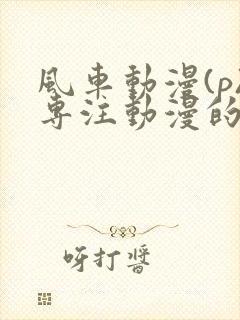 風車動漫(p
專注動漫的
呀打醬